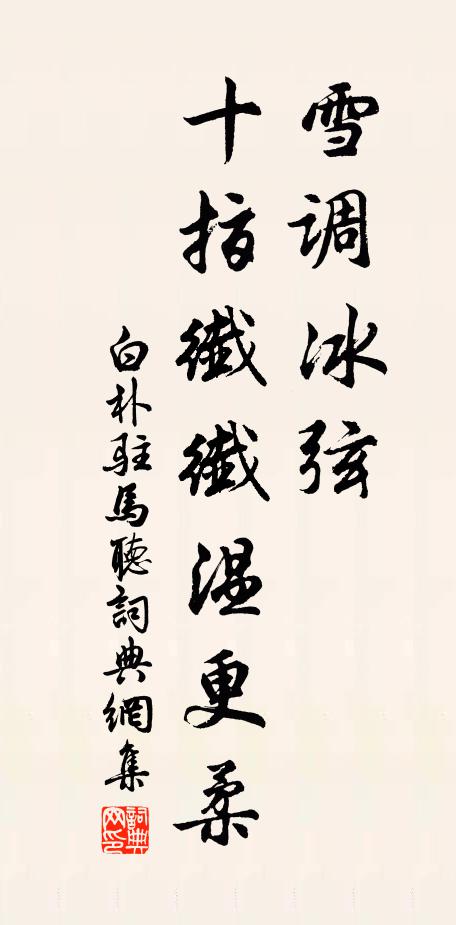 雪調冰弦
十指纖纖温更柔
白朴駐馬聽詞典網集
詞典網印